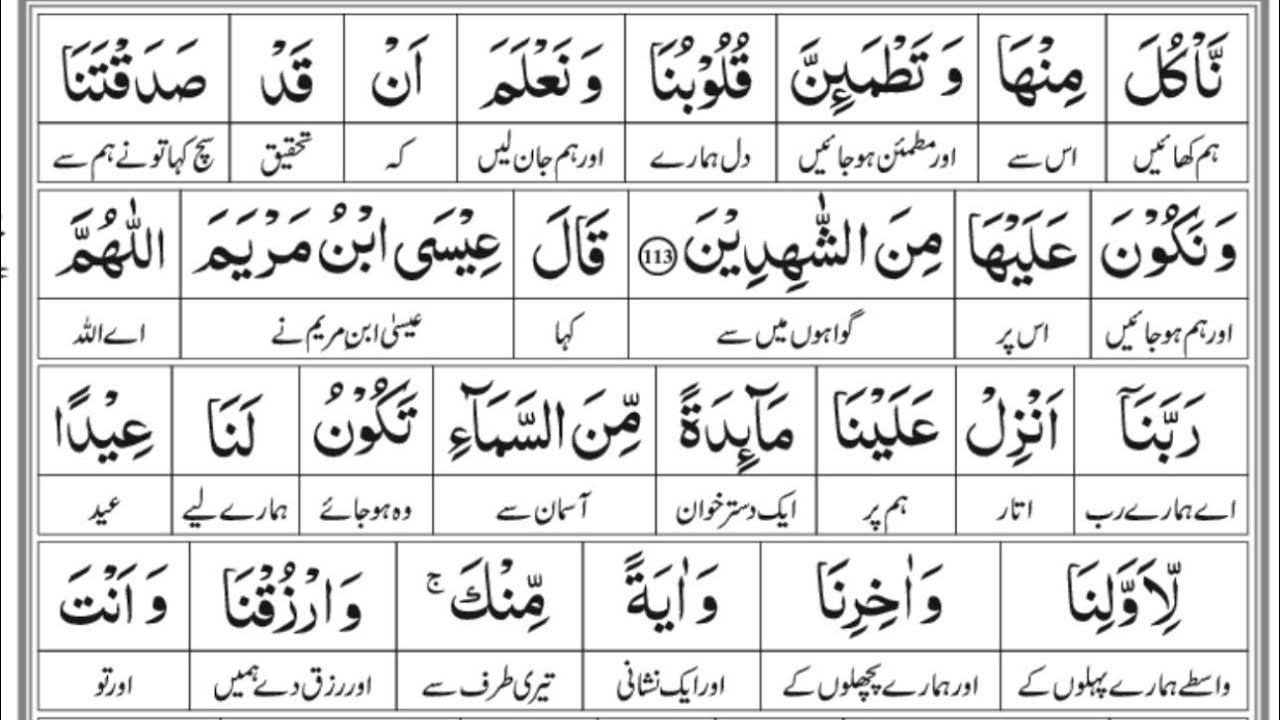 نَّاْكُلَ مِنْهَا وَ تَطْمَىِٕنَّ قُلُوْبُنَا وَ نَعْلَمَ اَنْ قَدْ صَدَقْتَنَا
ہم کھائیں اس سے اور مطمئن ہوجائیں دل ہمارے اور ہم جان لیں کہ تحقیق سچ کہا تو نے ہم سے
وَ نَكُوْنَ عَلَيْهَا مِنَ الشّٰهِدِيْنَ 113 قَالَ عِيْسَى ابْنُ مَرْيَمَ اللّٰهُمَّ
اور ہم ہوجائیں اس پر گواہوں میں سے کہا عیسیٰ ابنِ مریم نے اے اللہ
رَبَّنَاۤ اَنْزِلْ عَلَيْنَا مَآىِٕدَةً مِّنَ السَّمَآءِ تَكُوْنُ لَنَا عِيْدًا
اے ہمارے رب اتار ہم پر ایک دسترخوان آسمان سے وہ ہوجائے ہمارے لیے عید
لِّاَوَّلِنَا وَ اٰخِرِنَا وَ اٰيَةً مِّنْكَ ۚ وَ ارْزُقْنَا وَ اَنْتَ
واسطے ہمارے پہلوں کے اور ہمارے پچھلوں کے اور ایک نشانی تیری طرف سے اور رزق دے ہمیں اور تو